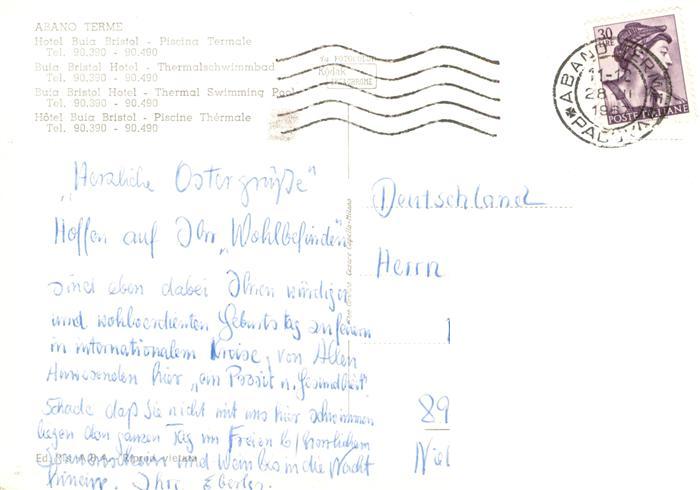 ABANO TERME
Hotel Buia Bristol - Piscina Termale
Tel. 90.390 - 90.490
Buia Bristol Hotel - Thermalschwimmbad
Tel. 90.390 - 90.490
Buia Bristol Hotel - Thermal Swimming Pool
Tel. 90.390 - 90.490
Hôtel Buia Bristol - Piscine Thérmale
Tel. 90.390 - 90.490
Kodak
30
LIRE
POSTE ITALIANE
ABANO TERME
28
PADOVA
„Herzliche Ostergrüße"
Hoffen auf Ihr „Wohlbefinden"
sind eben dabei Ihren würdigen
und wohlverdienten Geburtstag zu feiern
in internationalem Kreise, von Allen
Anwesenden hier „ein Prosit u. Gesundheit"
Schade daß Sie nicht mit uns hier schwimmen
liegen den ganzen Tag im Freien b/ herrlichem
Sonnenschein und Wein bis in die Nacht
hinein. Ihre Eberles.
Deutschland
Herrn
89